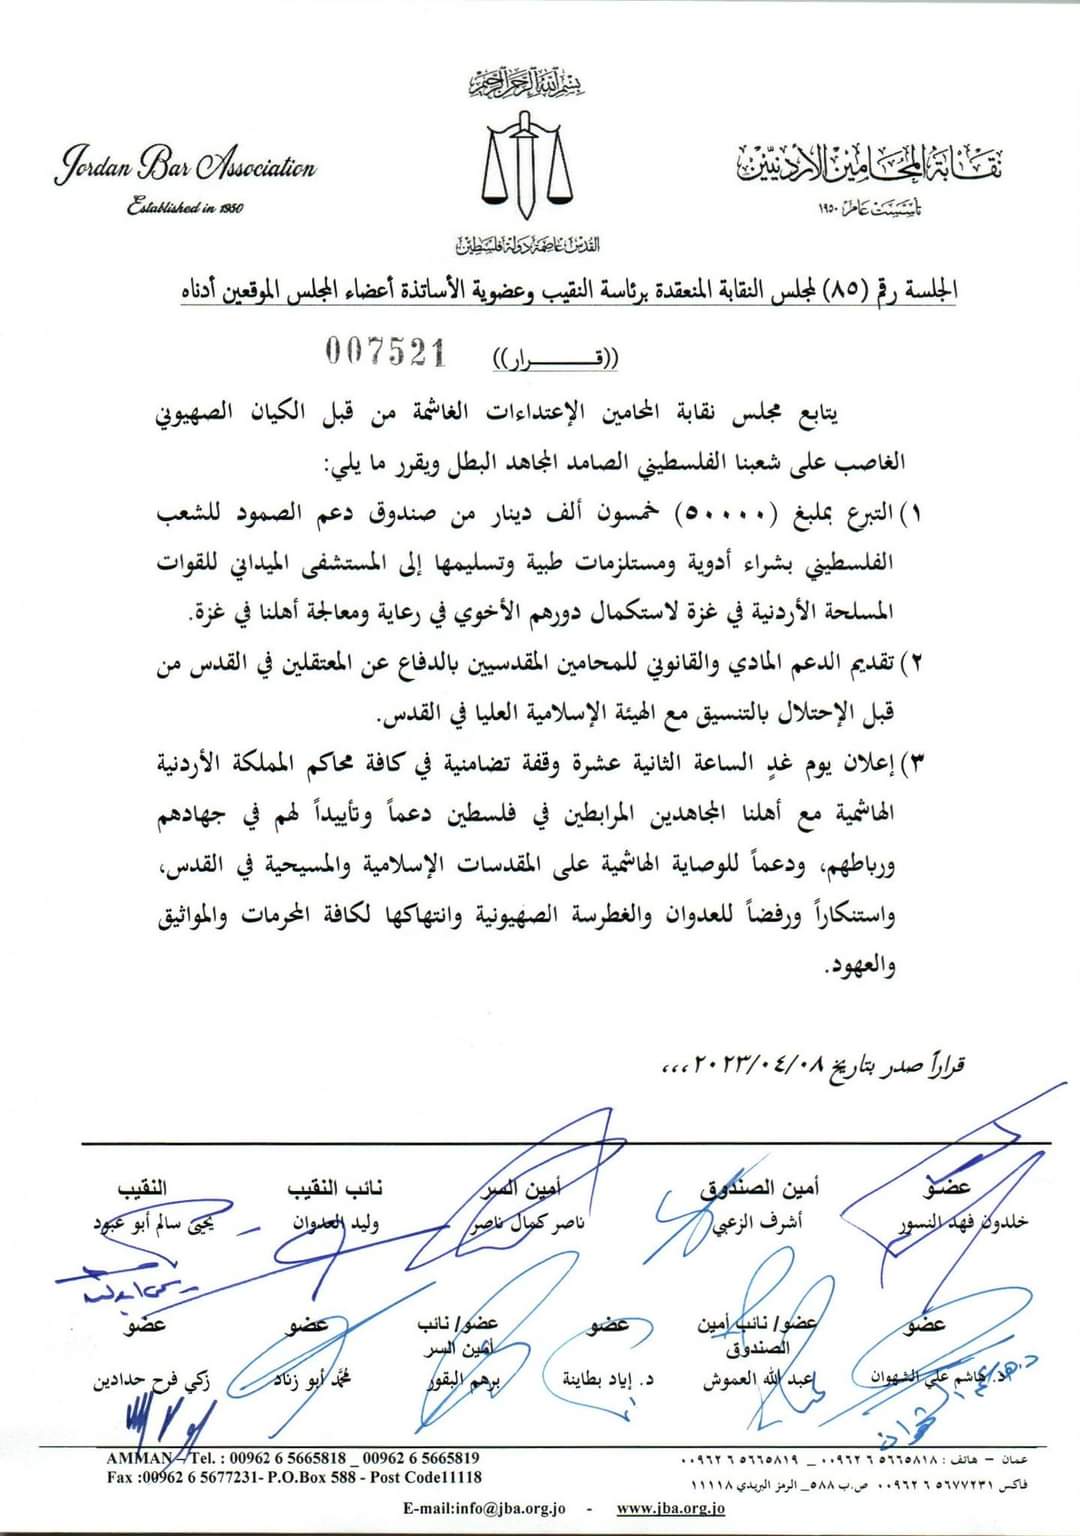 بسم الله الرحمن الرحيم
Jordan Bar Association
Established in 1950
نقابة المحامين الأردنيين
تأسست عام ١٩٥٠
القدس عاصمة دولة فلسطين
الجلسة رقم (٨٥) لمجلس النقابة المنعقدة برئاسة النقيب وعضوية الأساتذة أعضاء المجلس الموقعين أدناه
((قــــــــرار)) 007521
يتابع مجلس نقابة المحامين الإعتداءات الغاشمة من قبل الكيان الصهيوني
الغاصب على شعبنا الفلسطيني الصامد المجاهد البطل ويقرر ما يلي:
١) التبرع بملبغ (٥٠٠٠٠) خمسون ألف دينار من صندوق دعم الصمود للشعب
الفلسطيني بشراء أدوية ومستلزمات طبية وتسليمها إلى المستشفى الميداني للقوات
المسلحة الأردنية في غزة لاستكمال دورهم الأخوي في رعاية ومعالجة أهلنا في غزة.
٢) تقديم الدعم المادي والقانوني للمحامين المقدسيين بالدفاع عن المعتقلين في القدس من
قبل الإحتلال بالتنسيق مع الهيئة الإسلامية العليا في القدس.
٣) إعلان يوم غدٍ الساعة الثانية عشرة وقفة تضامنية في كافة محاكم المملكة الأردنية
الهاشمية مع أهلنا المجاهدين المرابطين في فلسطين دعماً وتأييداً لهم في جهادهم
ورباطهم، ودعماً للوصاية الهاشمية على المقدسات الإسلامية والمسيحية في القدس،
واستنكاراً ورفضاً للعدوان والغطرسة الصهيونية وانتهاكها لكافة المحرمات والمواثيق
والعهود.
قراراً صدر بتاريخ ٢٠٢٣/٠٤/٠٨،،،
عضو أمين الصندوق أمين السر نائب النقيب النقيب
خلدون فهد النسور أشرف الزعبي ناصر كمال ناصر وليد العدوان يحيى سالم أبو عبود
عضو عضو/ نائب أمين عضو عضو/ نائب عضو عضو
الصندوق أمين السر
د. هاشم علي الشهوان عبد الله العموش د. إياد بطاينة برهم البقور محمد أبو زناد زكي فرح حدادين
AMMAN – Tel. : 00962 6 5665818 _ 00962 6 5665819
Fax :00962 6 5677231- P.O.Box 588 - Post Code11118
عمان – هاتف : ٥٦٦٥٨١٨ ٦ ٠٠٩٦٢ _ ٥٦٦٥٨١٩ ٦ ٠٠٩٦٢
فاكس ٥٦٧٧٢٣١ ٦ ٠٠٩٦٢ ص.ب ٥٨٨_ الرمز البريدي ١١١١٨
E-mail:info@jba.org.jo - www.jba.org.jo